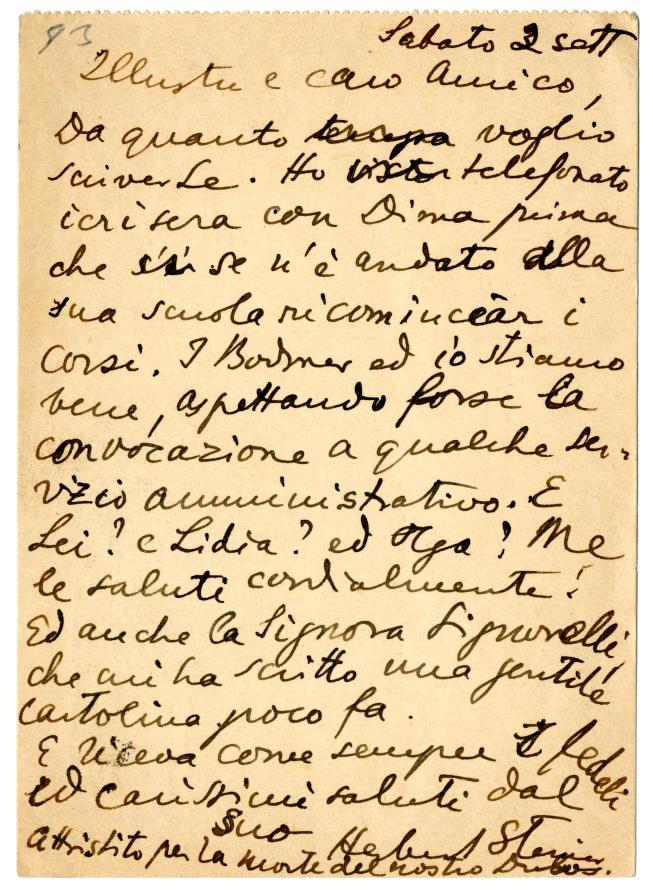 93
Sabato 2 sett
Illustre e caro Amico,
Da quanto tempo voglio
scriverLe. Ho telefonato
ieri sera con Dima prima
che se n'è andato alla
sua scuola ricominciar i
corsi. I Bodmer ed io stiamo
bene, aspettando forse la
convocazione a qualche ser-
vizio amministrativo. E
Lei? e Lidia? ed Olga? Me
le saluti cordialmente!
Ed anche la Signora Signorelli,
che mi ha scritto una gentile
cartolina poco fa.
E riceva come sempre i fedeli
ed carissimi saluti dal
suo Herbert Steiner
attristito per la morte del nostro Dubos.